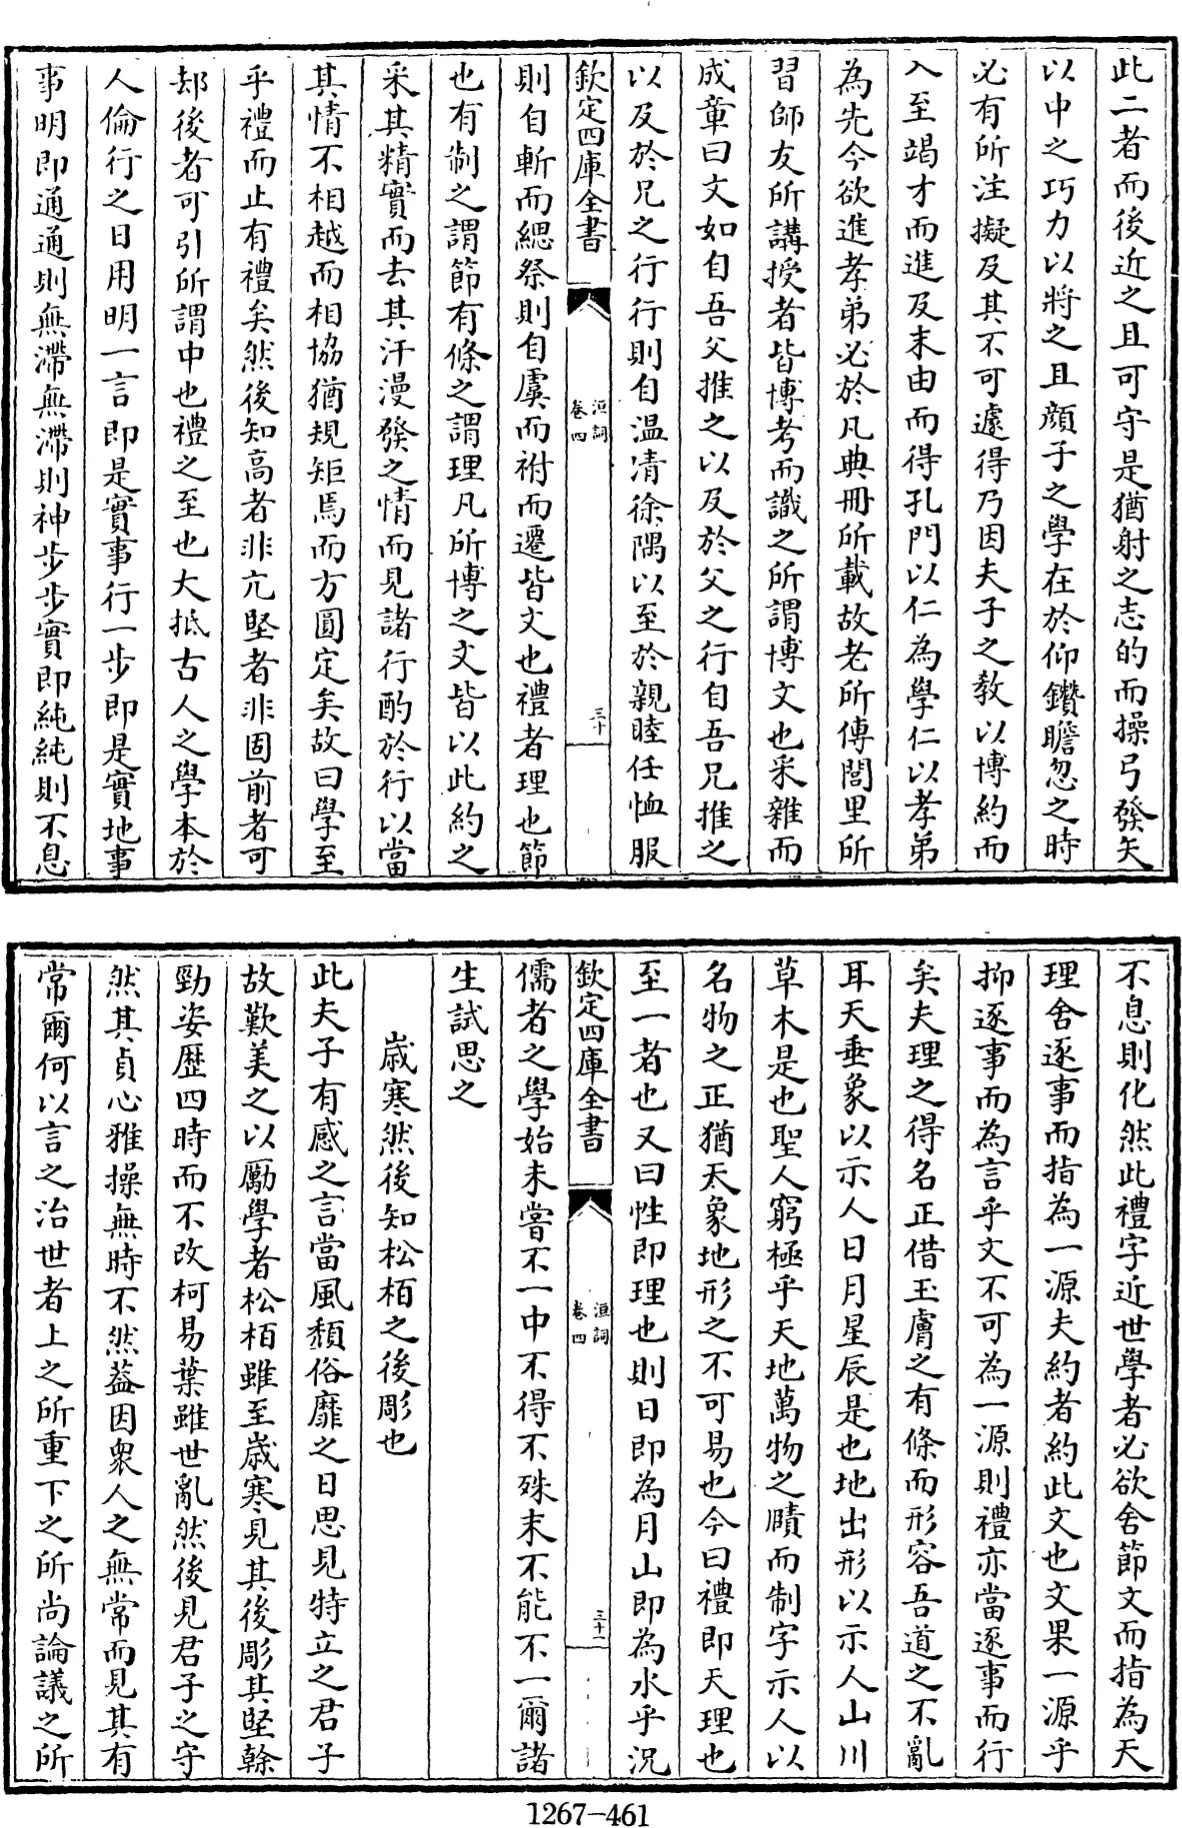 此二者而後近之且可守是猶射之志的而操弓發矢
以中之巧力以將之且顔子之學在於仰鑽瞻忽之時
必有所注擬及其不可遽得乃因夫子之教以博約而
入至竭才而進及末由而得孔門以仁為學仁以孝弟
為先今欲進孝弟必於凡典冊所載故老所傳閭里所
習師友所講授者皆博考而識之所謂博文也采雜而
成章曰文如自吾父推之以及於父之行自吾兄推之
以及於兄之行行則自温凊徐隅以至於親睦任恤服
欽定四庫全書
洹詞
卷四
三十
則自斬而緦祭則自虞而祔而遷皆文也禮者理也節
也有制之謂節有條之謂理凡所博之文皆以此約之
采其精實而去其汗漫發之情而見諸行酌於行以當
其情不相越而相協猶規矩焉而方圓定矣故曰學至
乎禮而止有禮矣然後知高者非亢堅者非固前者可
却後者可引所謂中也禮之至也大抵古人之學本於
人倫行之日用明一言即是實事行一步即是實地事
事明即通通則無滯無滯則神步步實即純純則不息
不息則化然此禮字近世學者必欲舍節文而指為天
理舍逐事而指為一源夫約者約此文也文果一源乎
抑逐事而為言乎文不可為一源則禮亦當逐事而行
矣夫理之得名正借玉膚之有條而形容吾道之不亂
耳天垂象以示人日月星辰是也地出形以示人山川
草木是也聖人窮極乎天地萬物之賾而制字示人以
名物之正猶天象地形之不可易也今曰禮即天理也
至一者也又曰性即理也則日即為月山即為水乎況
欽定四庫全書
洹詞
卷四
三十一
儒者之學始未嘗不一中不得不殊末不能不一爾諸
生試思之
歲寒然後知松栢之後彫也
此夫子有感之言當風頽俗靡之日思見特立之君子
故歎美之以勵學者松栢雖至歲寒見其後彫其堅幹
勁姿歷四時而不改柯易葉雖世亂然後見君子之守
然其貞心雅操無時不然葢因衆人之無常而見其有
常爾何以言之治世者上之所重下之所尚論議之所
1267-461